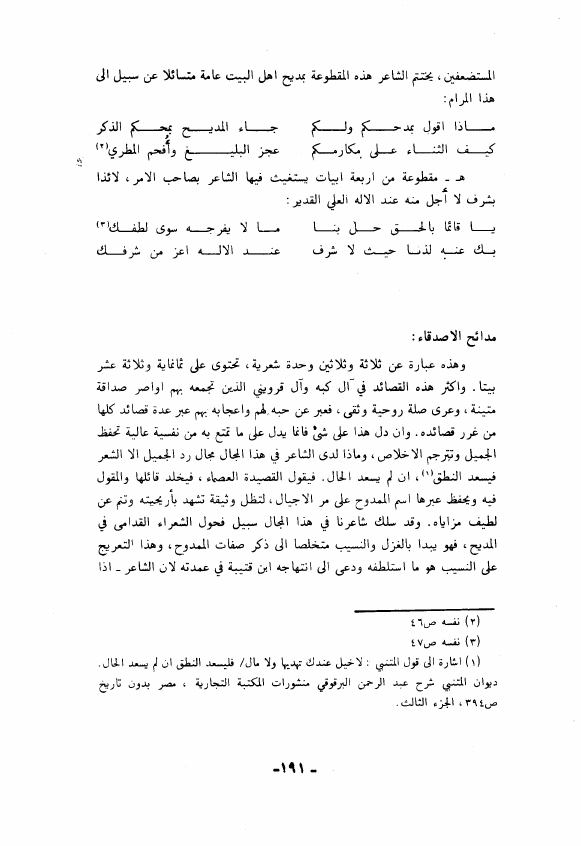 المستضعفين، يختتم الشاعر هذه المقطوعة بمديح اهل البيت عامة متسائلا عن سبيل الى
هذا المرام:
مـــاذا اقول بمدحـــكم ولـــكم    جـــاء المديـــح بمحـــكم الذكر
كيـــف الثنـــاء عـــلى مكارمـــكم    عجز البليـــــغ وأُفحم المطري(٢)
هـ ـ مقطوعة من اربعة ابيات يستغيث فيها الشاعر بصاحب الامر، لائذا
بشرف لا أجل منه عند الاله العلي القدير:
يـــا قائما بالحـــق حـــل بنـــا    مـــا لا يفرجـــه سوى لطفـــك(٣)
بـــك عنـــه لذنـــا حيـــث لا شرف    عنـــد الالـــه اعز من شرفـــك
مدائح الاصدقاء:
وهذه عبارة عن ثلاثة وثلاثين وحدة شعرية، تحتوى على ثمانماية وثلاثة عشر
بيتا. واكثر هذه القصائد في آل كبه وآل قزويني الذين تجمعه بهم اواصر صداقة
متينة، وعرى صلة روحية وثقى، فعبر عن حبه لهم واعجابه بهم عبر عدة قصائد كلها
من غرر قصائده. وان دل هذا على شئ فانما يدل على ما تمتع به من نفسية عالية تحفظ
الجميل وتترجم الاخلاص، وماذا لدى الشاعر في هذا المجال مجال رد الجميل الا الشعر
فيسعد النطق(١)، ان لم يسعد الحال. فيقول القصيدة العصماء، فيخلد قائلها والمقول
فيه ويحفظ عبرها اسم الممدوح على مر الاجيال، لتظل وثيقة تشهد بأريحيته وتنم عن
لطيف مزاياه. وقد سلك شاعرنا في هذا المجال سبيل فحول الشعراء القدامى في
المديح، فهو يبدا بالغزل والنسيب متخلصا الى ذكر صفات الممدوح، وهذا التعريج
على النسيب هو ما استلطفه ودعى الى انتهاجه ابن قتيبة في عمدته لان الشاعر ـ اذا
(٢) نفسه ص٤٦
(٣) نفسه ص٤٧
(١) اشارة الى قول المتنبي : لاخيل عندك تهديها ولا مال/ فليسعد النطق ان لم يسعد الحال.
ديوان المتنبي شرح عبد الرحمن البرقوقي منشورات المكتبة التجارية ، مصر بدون تاريخ
ص٣٩٤، الجزء الثالث.
ـ ١٩١ـ